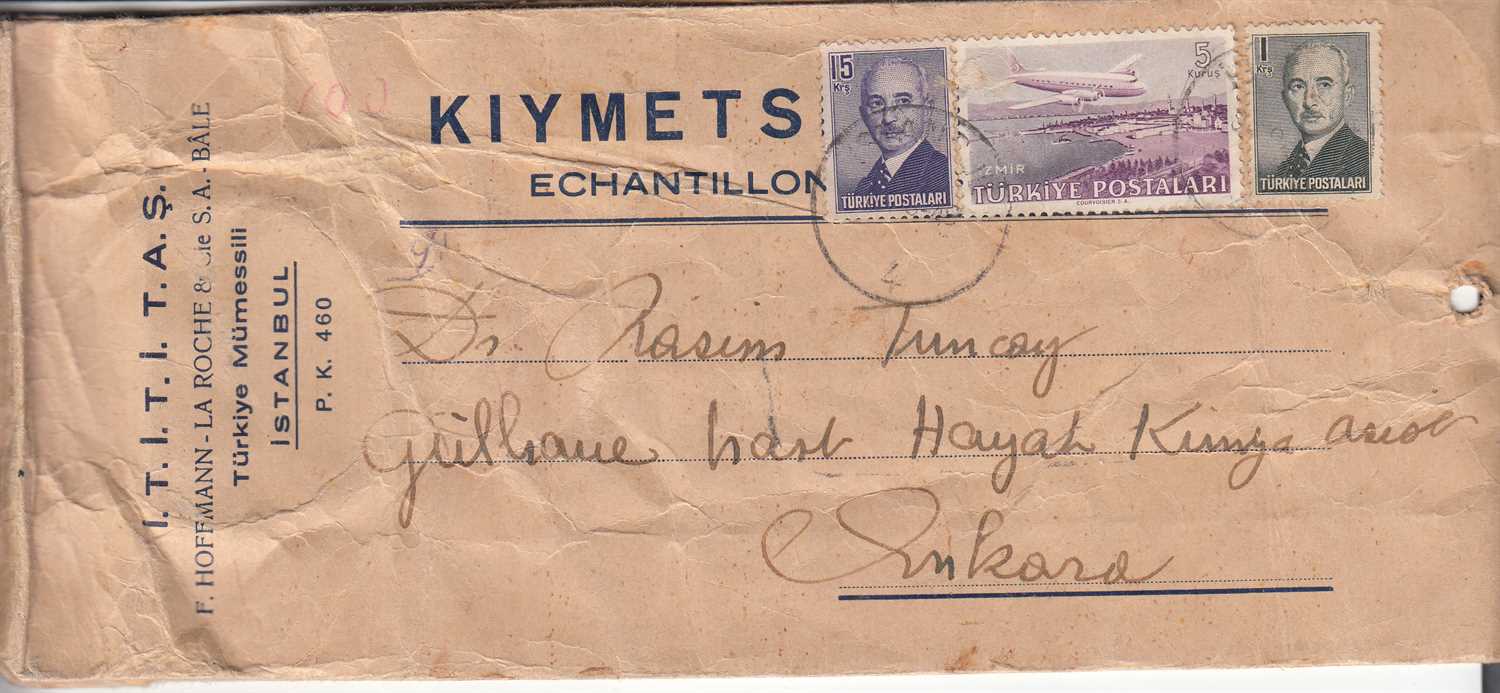 I. T. İ. T. İ. T. A. Ş.
F. HOFFMANN-LA ROCHE & Cie S. A. - BÂLE
Türkiye Mümessili
İSTANBUL
P. K. 460
100
KIYMETS
ECHANTILLON
15
Krş
TÜRKİYE POSTALARI
5
Kuruş
İZMİR
TÜRKİYE POSTALARI
COURVOISIER S.A.
1
Krş
TÜRKİYE POSTALARI
4
Dr. Rasim Tuncay
Gülhane hast Hayati Kimya asist
Ankara